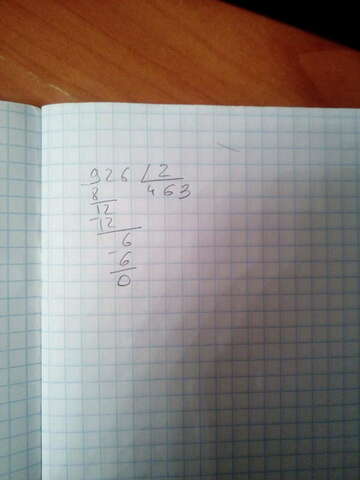 926 2
8 463
12
-12
6
-6
0